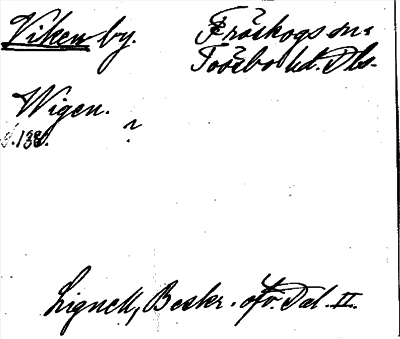 Viken by. Fröskogs sn:
Tössbo hd. Dls.
Wigen.
s. 138. ?
Lignell, Beskr. öfv. Dal. II.